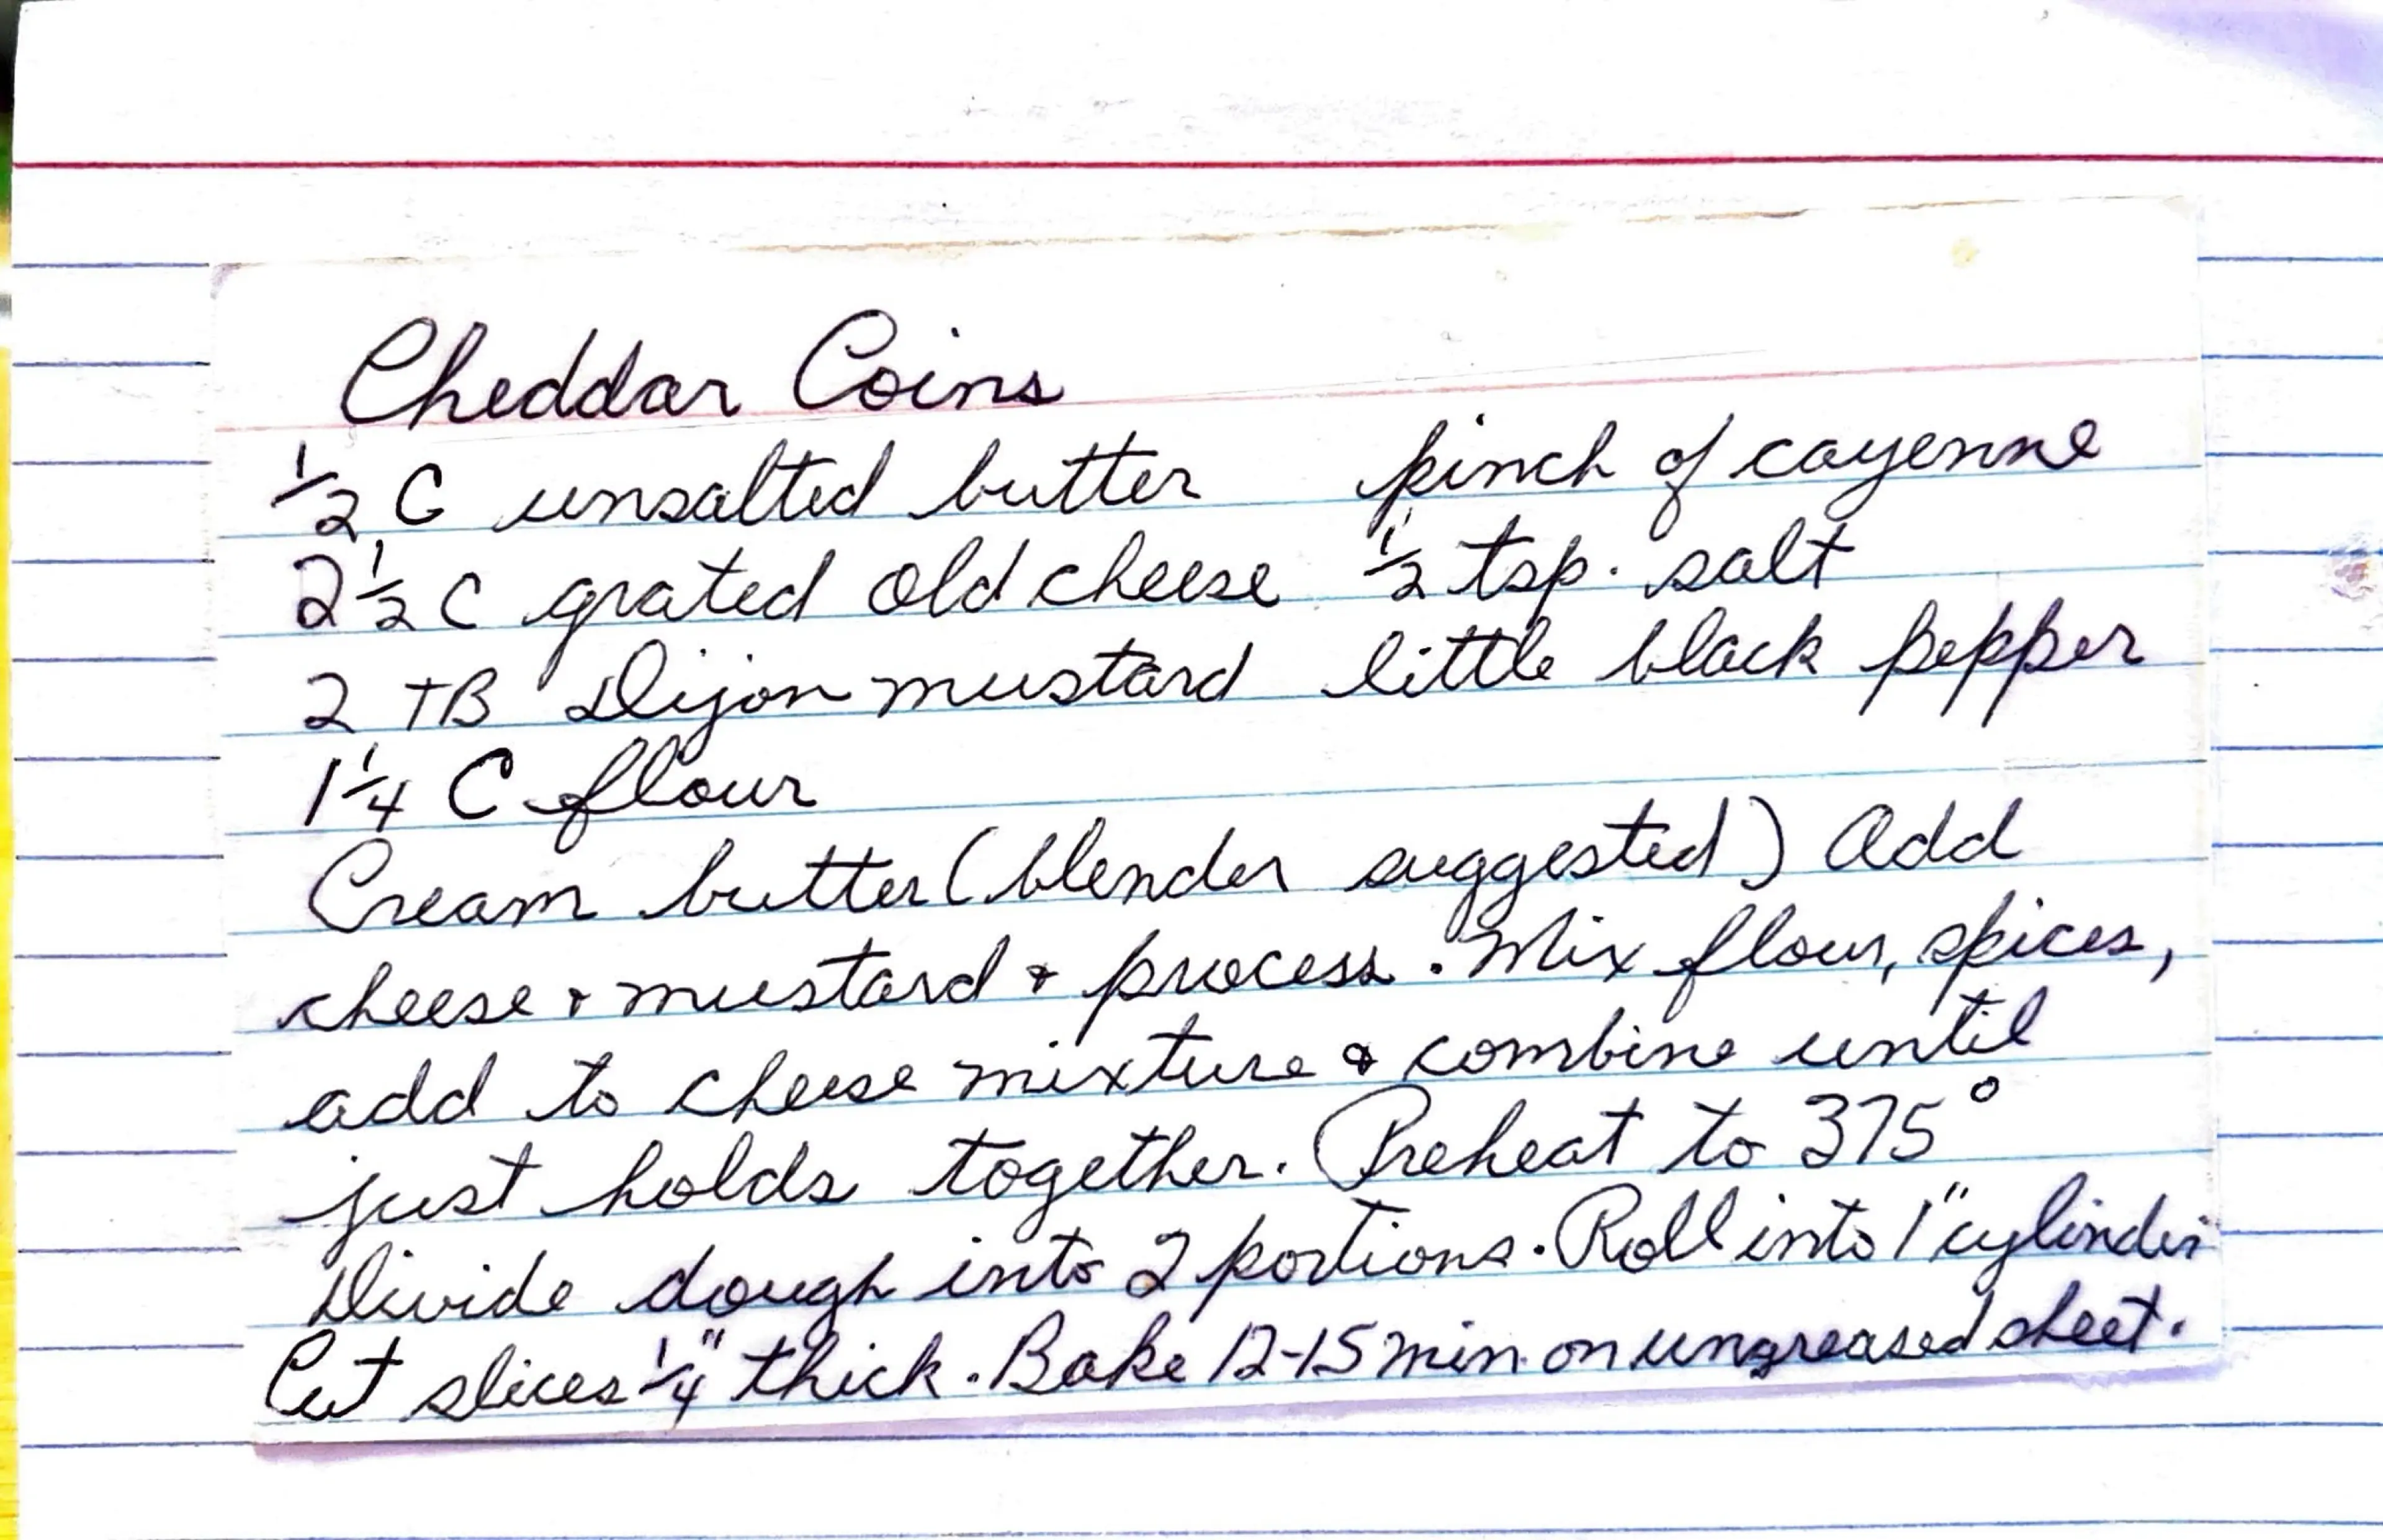 Cheddar Coins
½ C unsalted butter pinch of cayenne
2½ C grated old cheese ½ tsp. salt
2 TB Dijon mustard little black pepper
1¼ C flour
Cream butter (blender suggested) Add
cheese & mustard & process. Mix flour, spices,
add to cheese mixture & combine until
just holds together. Preheat to 375°
Divide dough into 2 portions. Roll into 1" cylinder
Cut slices ¼" thick. Bake 12-15 min. on ungreased sheet.